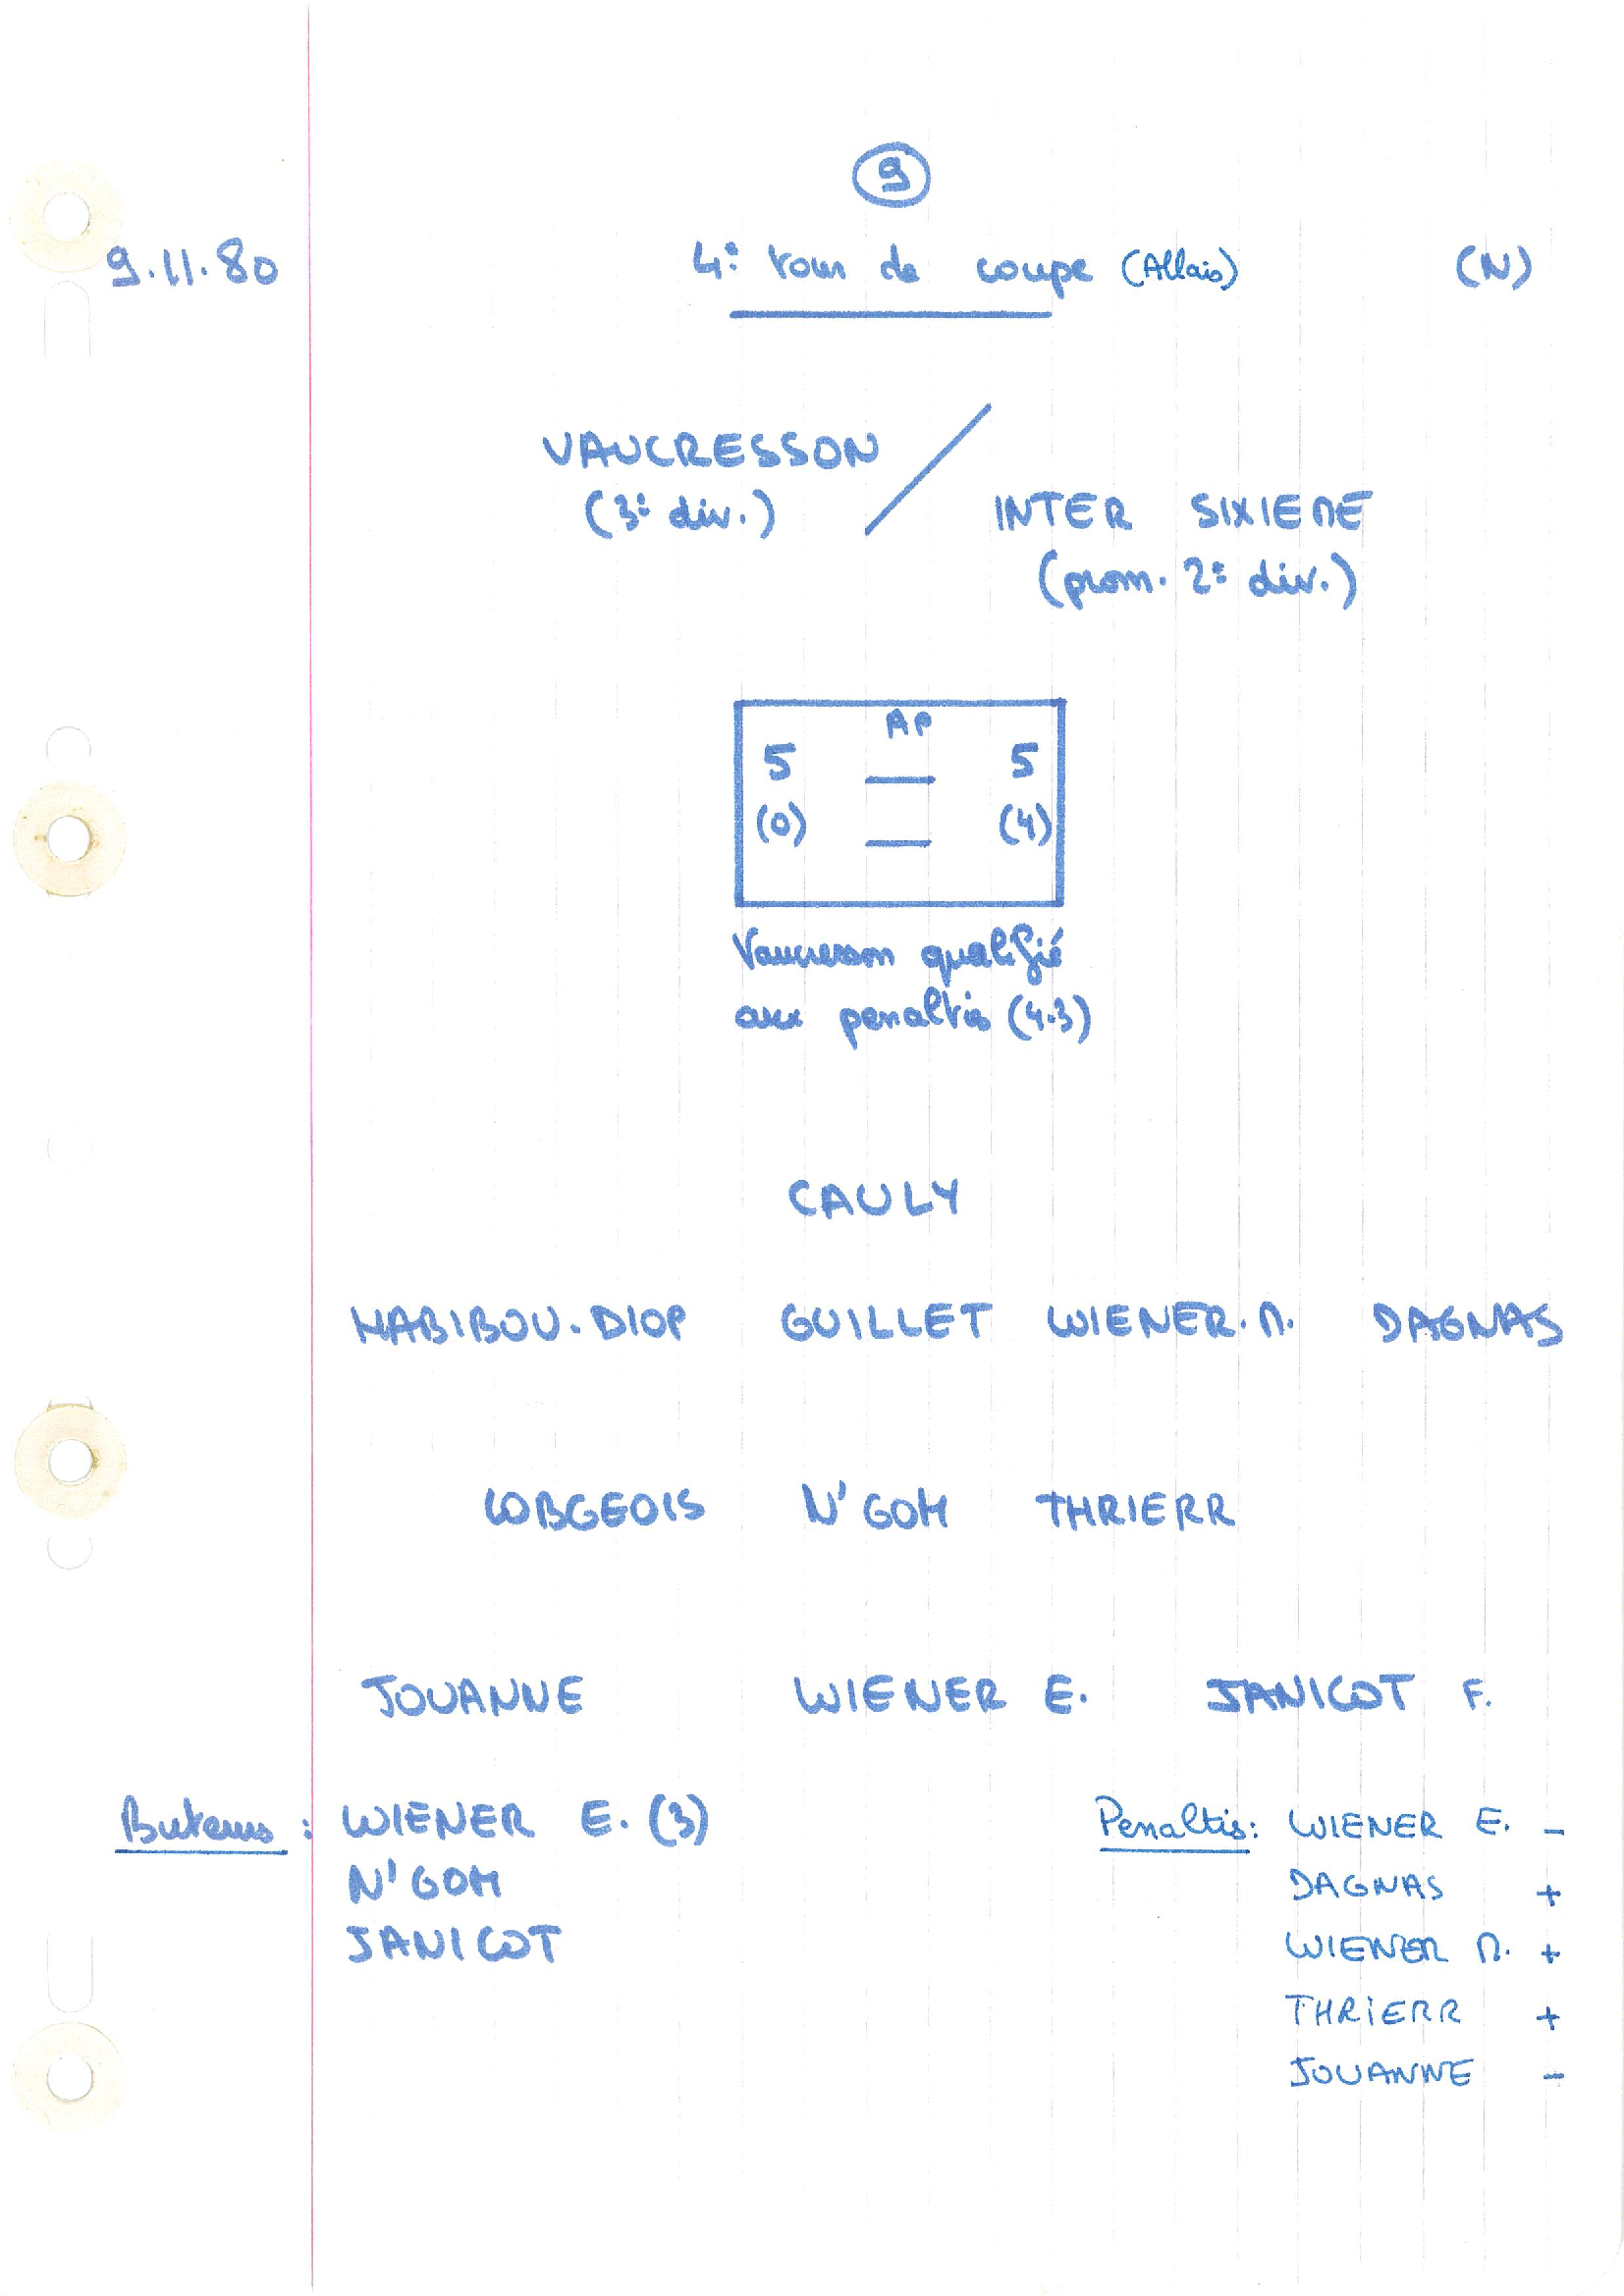 9
9.11.80 4e tour de coupe (Allais) (N)
VAUCRESSON
(3e div.)
INTER SIXIEME
(prom. 2e div.)
AP
5 — 5
(0) — (4)
Vaucresson qualifié
aux penaltis (4.3)
CAULY
HABIBOU.DIOP GUILLET WIENER.M. DAGNAS
LOBGEOIS N'GOM THRIERR
JOUANNE WIENER E. JANICOT F.
Buteurs : WIENER E. (3)
N'GOM
JANICOT
Penaltis: WIENER E. -
DAGNAS +
WIENER M. +
THRIERR +
JOUANNE -